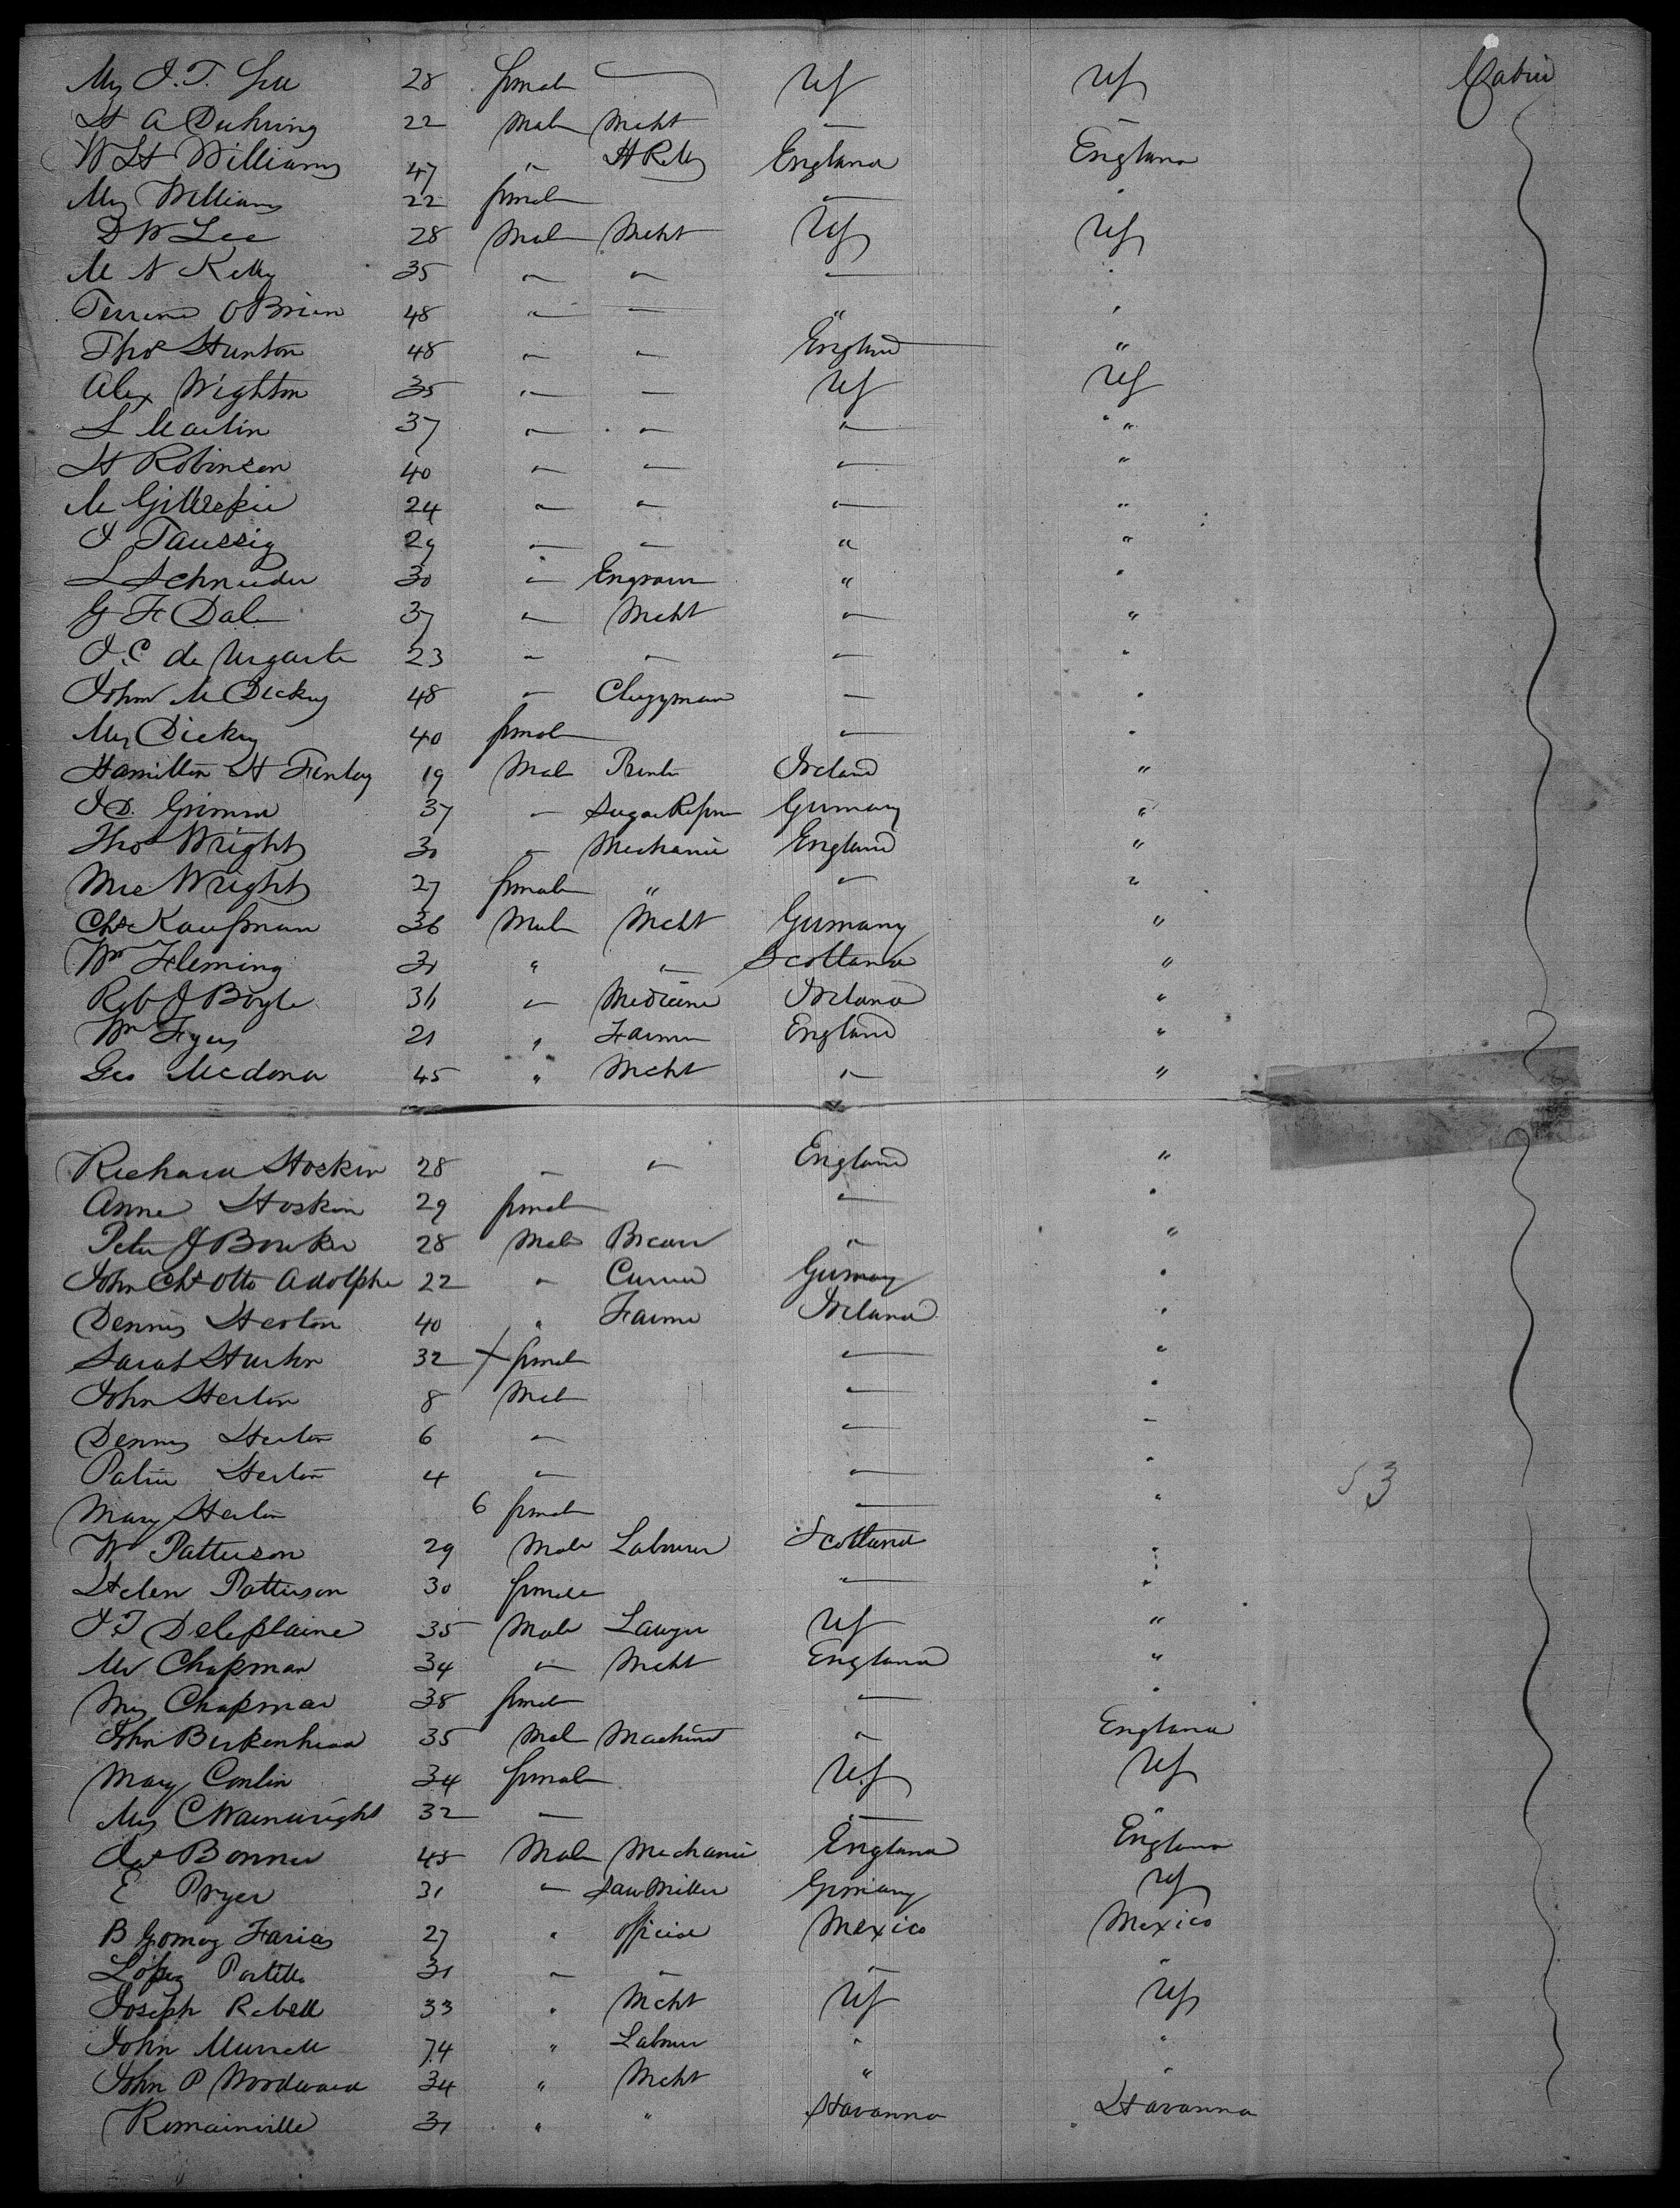 Mrs J. T. 28 female US US Cabin
H A Duhring 22 Male Mcht —
W H Williams 47 " England England
Mrs Williams 22 female — "
D W Lee 28 Male Mcht US US
M N Kelly 35 " " — "
Terrence O'Brien 48 " — " "
Thos Hunton 48 " " England "
Alex Wighton 35 " — US US
L Martin 37 " " " "
H Robinson 40 " " " "
M Gillespie 24 " " " "
J Taussig 29 " " " "
L Schneider 30 " Engraver " "
G F Dale 37 " Mcht " "
J. C de Ugarte 23 " " " "
John M Dickey 48 " Clergyman — "
Mrs Dickey 40 female " "
Hamilton H Finlay 19 Male Printer Ireland "
J D. Grimm 37 " Sugar Refiner Germany "
Thos Wright 30 " Mechanic England "
Mrs Wright 27 female " " "
Chs Kaufman 36 Male Mcht Germany "
Wm Fleming 31 " " Scotland "
Rob J Boyle 36 " Medicine Ireland "
Wm Fyers 21 " Farmer England "
Geo Mcdona 45 " Mcht " "
Richard Hoskin 28 " " England "
Anne Hoskin 29 female " "
Peter J Bowker 28 Male " "
John Chs Otto Adolphe 22 " Currier Germany "
Dennis Herton 40 " Farmer Ireland "
Sarah Herton 32 female " "
John Herton 8 Male " "
Dennis Herton 6 " " "
Patric Herton 4 " " " 53
Mary Herton 6 female " "
W Patterson 29 Male Labourer Scotland "
Helen Patterson 30 female " "
J T Deleplaine 35 Male Lawyer US "
Mr Chapman 34 " Mcht England "
Mrs Chapman 38 female " "
John Birkenhead 35 Male Machinist " England
Mary Conlin 34 female US US
Mrs C Wainwright 32 " " "
Jas Bonner 45 Male Mechanic England England
E Pryer 31 " Saw Miller Germany US
B Gomez Farias 27 " Officer Mexico Mexico
Lopez Portillo 31 " " " "
Joseph Rebell 33 " Mcht US US
John Murrell 74 " Labourer " "
John P Woodward 34 " Mcht " "
Romainville 31 " " Havanna Havanna